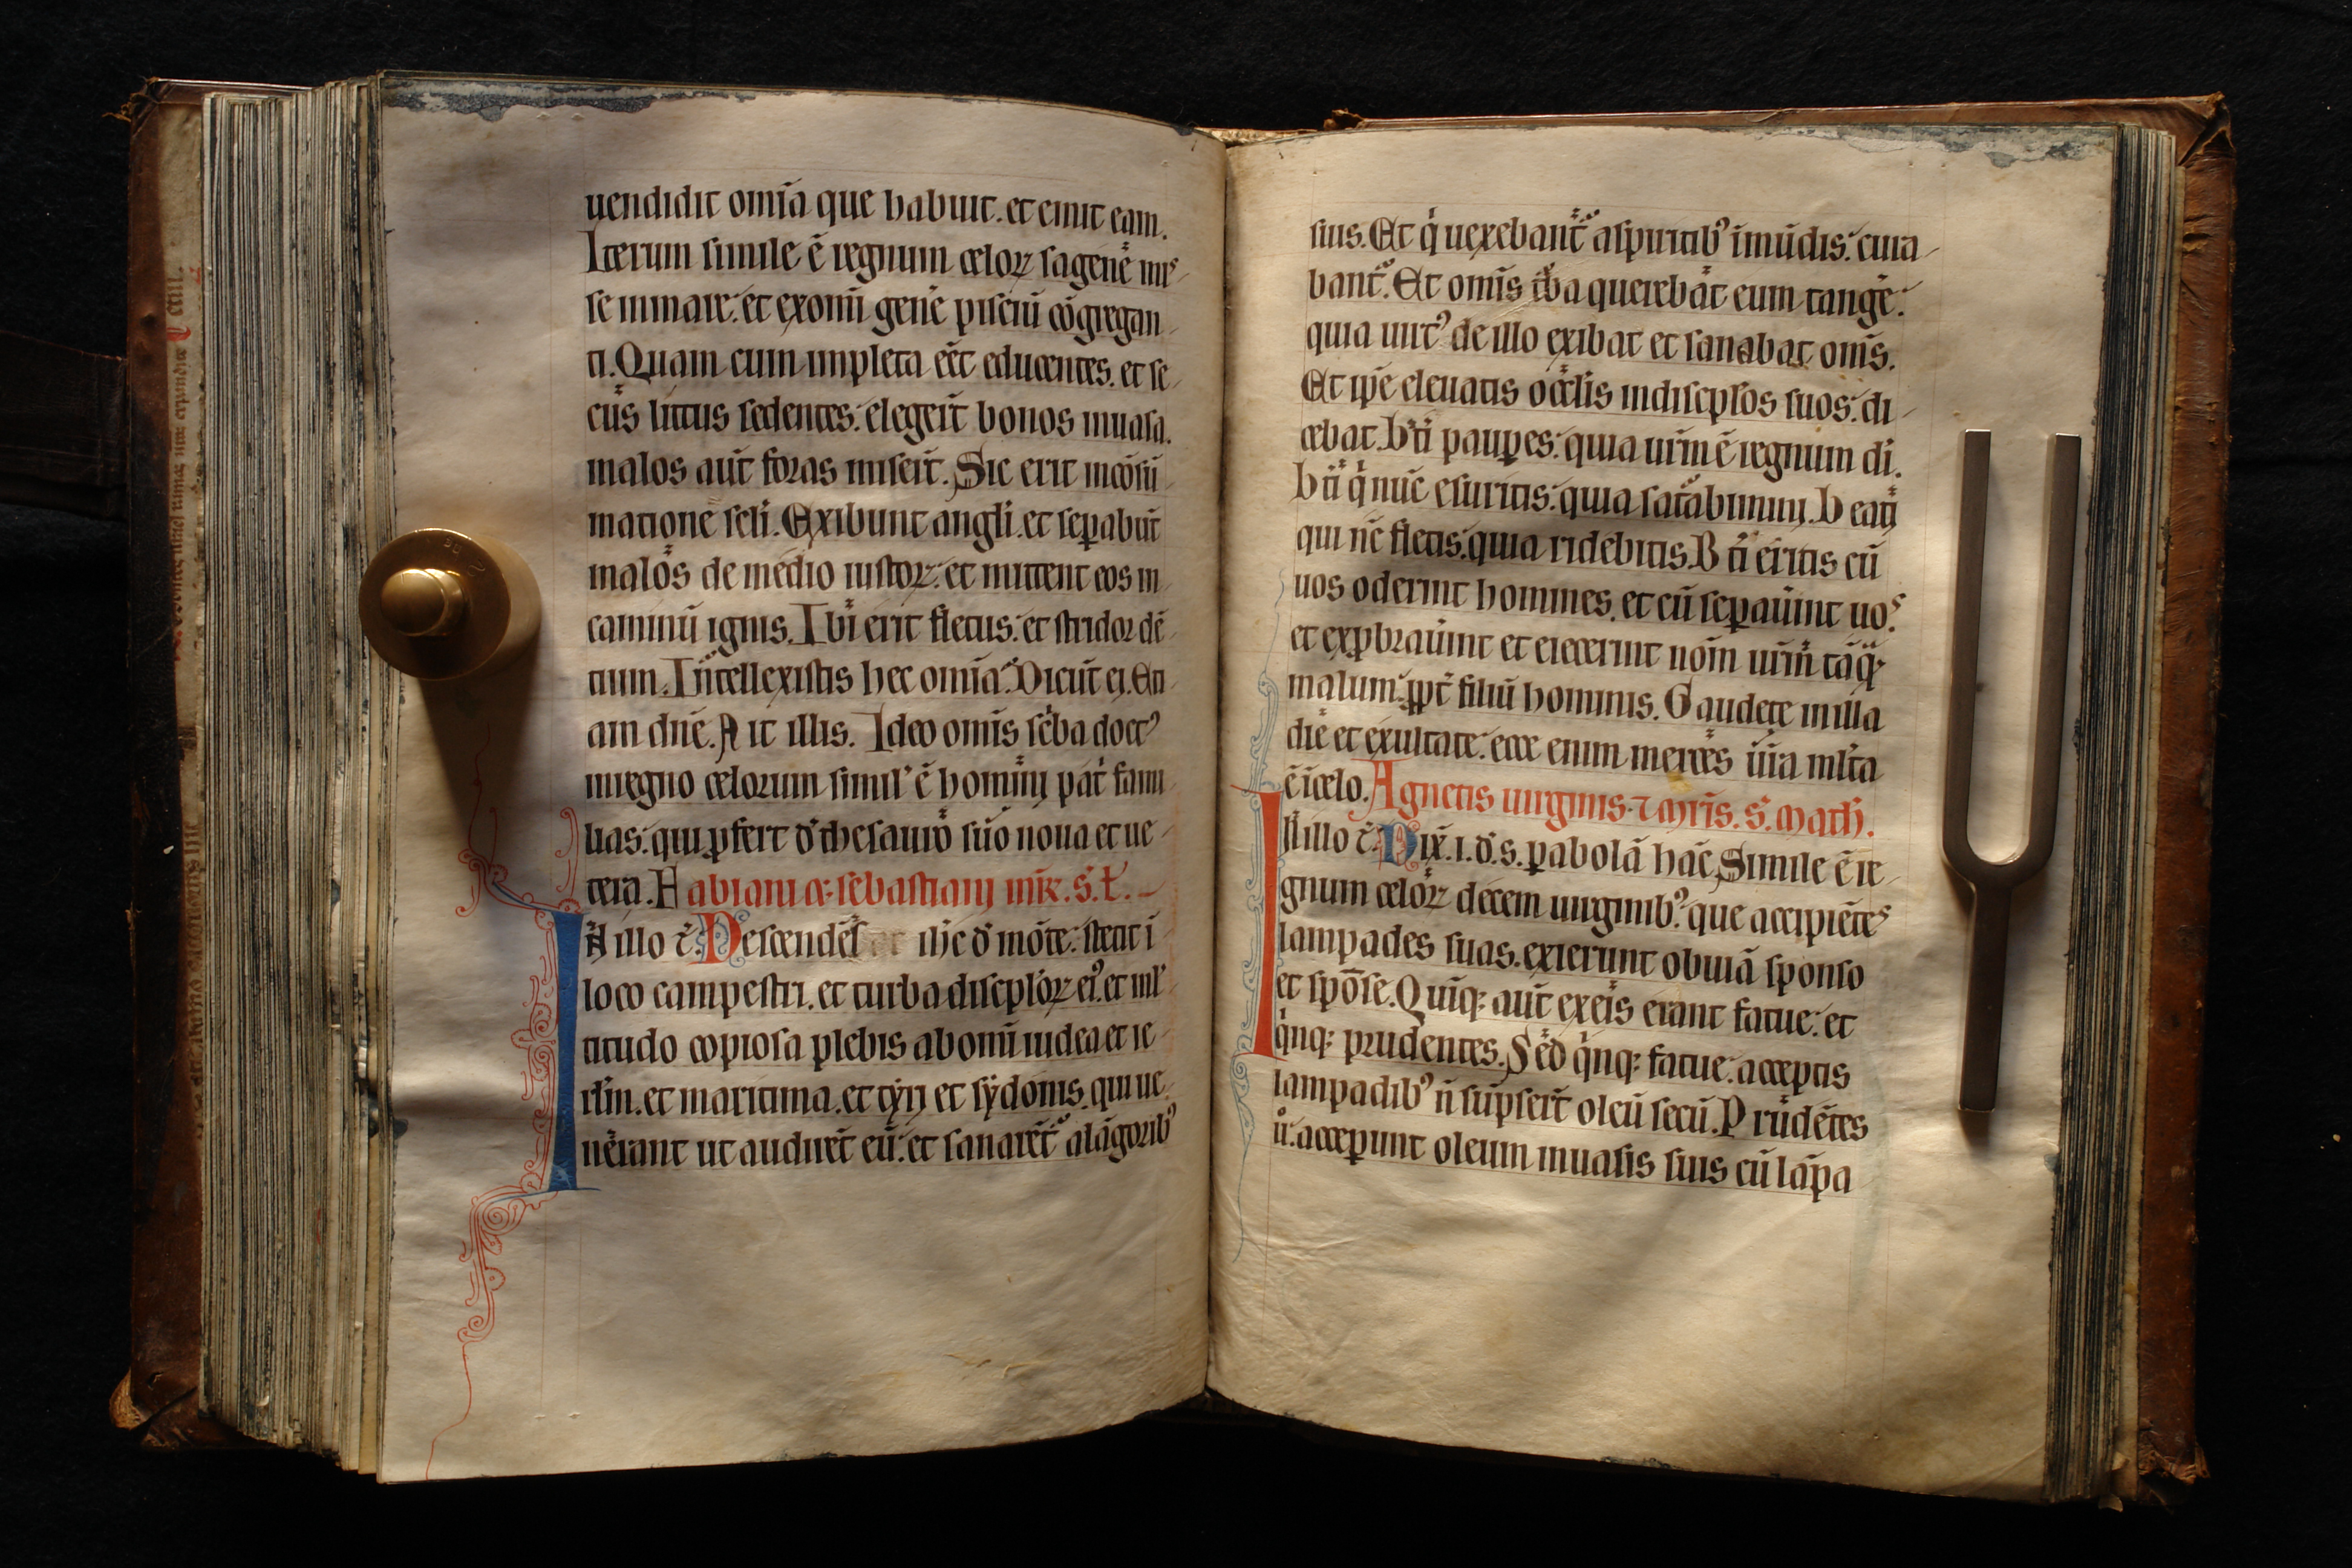 uendidit om̄ia que habuit. et emit eam.
Iterum simile ē regnum celoꝝ sagene mis
se in mare. et ex om̄i gen̄e pisciū cōgregan
ti. Quam cum impleta eēt educentes. et se
cus littus sedentes. elegeȓt bonos in uasa.
malos aut̄ foras miseȓt. Sic erit in cōsū
matione scl̄i. Exibunt angl̄i. et sepabūt
malos de medio iustoꝝ. et mittent eos in
caminū ignis. Ibi erit fletus. et stridor dē
tium. Intellexistis hec om̄ia. Dicūt ei. Eti
am dn̄e. Ait illis. Ideo om̄is sc̄ba doctꝰ
in regno celorum simil’ ē homini pat̄ fami
lias. qui ꝓfert d’ thesauro suo noua et ue
tera. Fabiani ⁊ sebastiani mr̄. s. L.
In illo t̄. Descendēs ih̄c d’ mōte. stetit ī
loco campestri. et turba discipl’oꝝ eiꝰ. et ml’
titudo copiosa plebis ab om̄i iudea et ie
rl̄m. et maritima. et tyri et sydonis. qui ue
nerant ut audireȓt eū. et sanareȓt a lāgoribꝰ
suis. Et q̇ uexebant̄ a spiritibꝰ īmūdis. cura
bant̄. Et om̄is tȓba querebat eum tangȇ.
quia uirtꝰ de illo exibat et sanabat om̄s.
Et ip̄e eleuatis oc̄lis in discipl̄os suos. di
cebat. b’ti pauꝑes. quia ur̄m ē regnum di.
b’ti q̇ nūc esuritis. quia sat̄abimini. Beati
qui nc̄ fletis. quia ridebitis. B’ti eritis cū
uos oderint homines. et cū seꝑauint uos.
et exꝓbrauint et eiecerint nōm ur̄m tāꝙ
malum. ꝓpt̄ filiū hominis. Gaudete in illa
die et exultate. ecce enim merces ur̄a ml̄ta
ē ī celo. Agnetis uirginis ⁊ mr̄is. s. math.
In illo t̄. Dix̄. i. d’. s. ꝑabolā hāc. Simile ē re
gnum celoꝝ decem uirginibꝰ. que accipiētes
lampades suas. exierunt obuiā sponso
et spōse. Quīqꝫ aut̄ ex eis erant fatue. et
q̇nqꝫ prudentes. Sed q̇nqꝫ fatue. acceptis
lampadibꝰ n̄ sūpseȓt oleū secū. Prudētes
u̇. acceꝑunt oleum in uasis suis cū lāpa